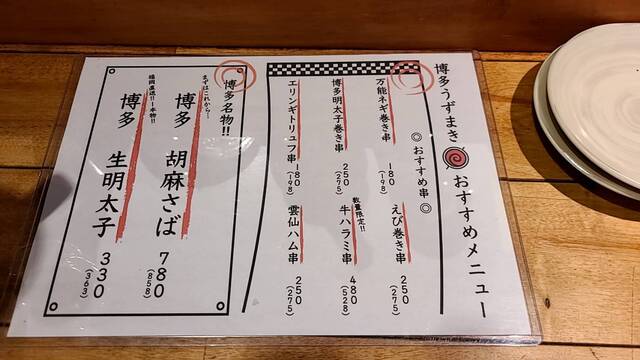 博多うずまき おすすめメニュー
◎おすすめ串◎
万能ネギ巻き串 180 (198)
えび巻き串 250 (275)
博多明太子巻き串 250 (275)
数量限定!!
牛ハラミ串 480 (528)
エリンギトリュフ串 180 (198)
雲仙ハム串 250 (275)
博多名物!!
まずはこれから〜
博多 胡麻さば 780 (858)
福岡直送!!本物!!
博多 生明太子 330 (363)